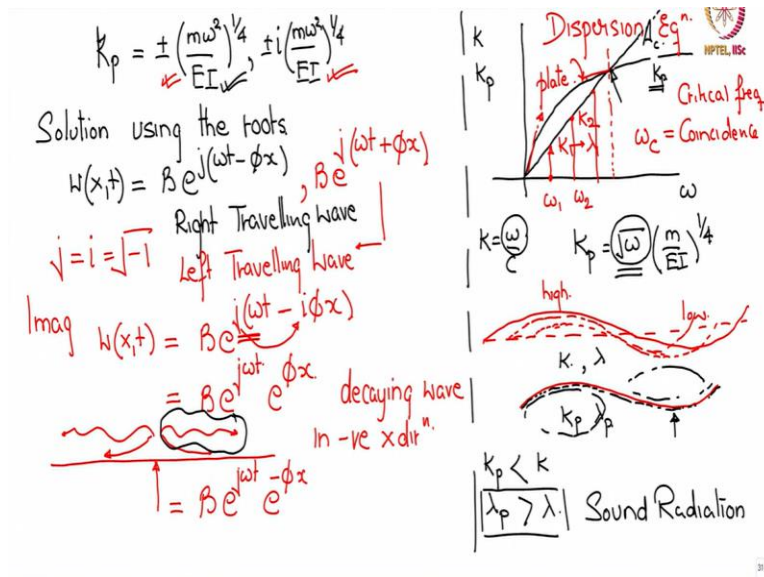 k_p = ± (mω²/EI)^1/4, ± i (mω²/EI)^1/4
Solution using the roots
W(x,t) = B e^j(ωt-φx), B e^j(ωt+φx)
Right Travelling wave
j = i = √-1
Left Travelling wave
Imag W(x,t) = B e^j(ωt - iφx)
= B e^jωt e^φx
decaying wave
in -ve x dirⁿ.
= B e^jωt e^-φx
Dispersion Eqⁿ.
NPTEL, IISc
k
k_p
plate
Ac.
k_p
Critical freq
ω_c = Coincidence
k_1 → λ
k_2
ω_1 ω_2
ω
K = ω/c
k_p = √ω (m/EI)^1/4
high.
low.
K, λ
k_p λ_p
k_p < k
λ_p > λ
Sound Radiation
31